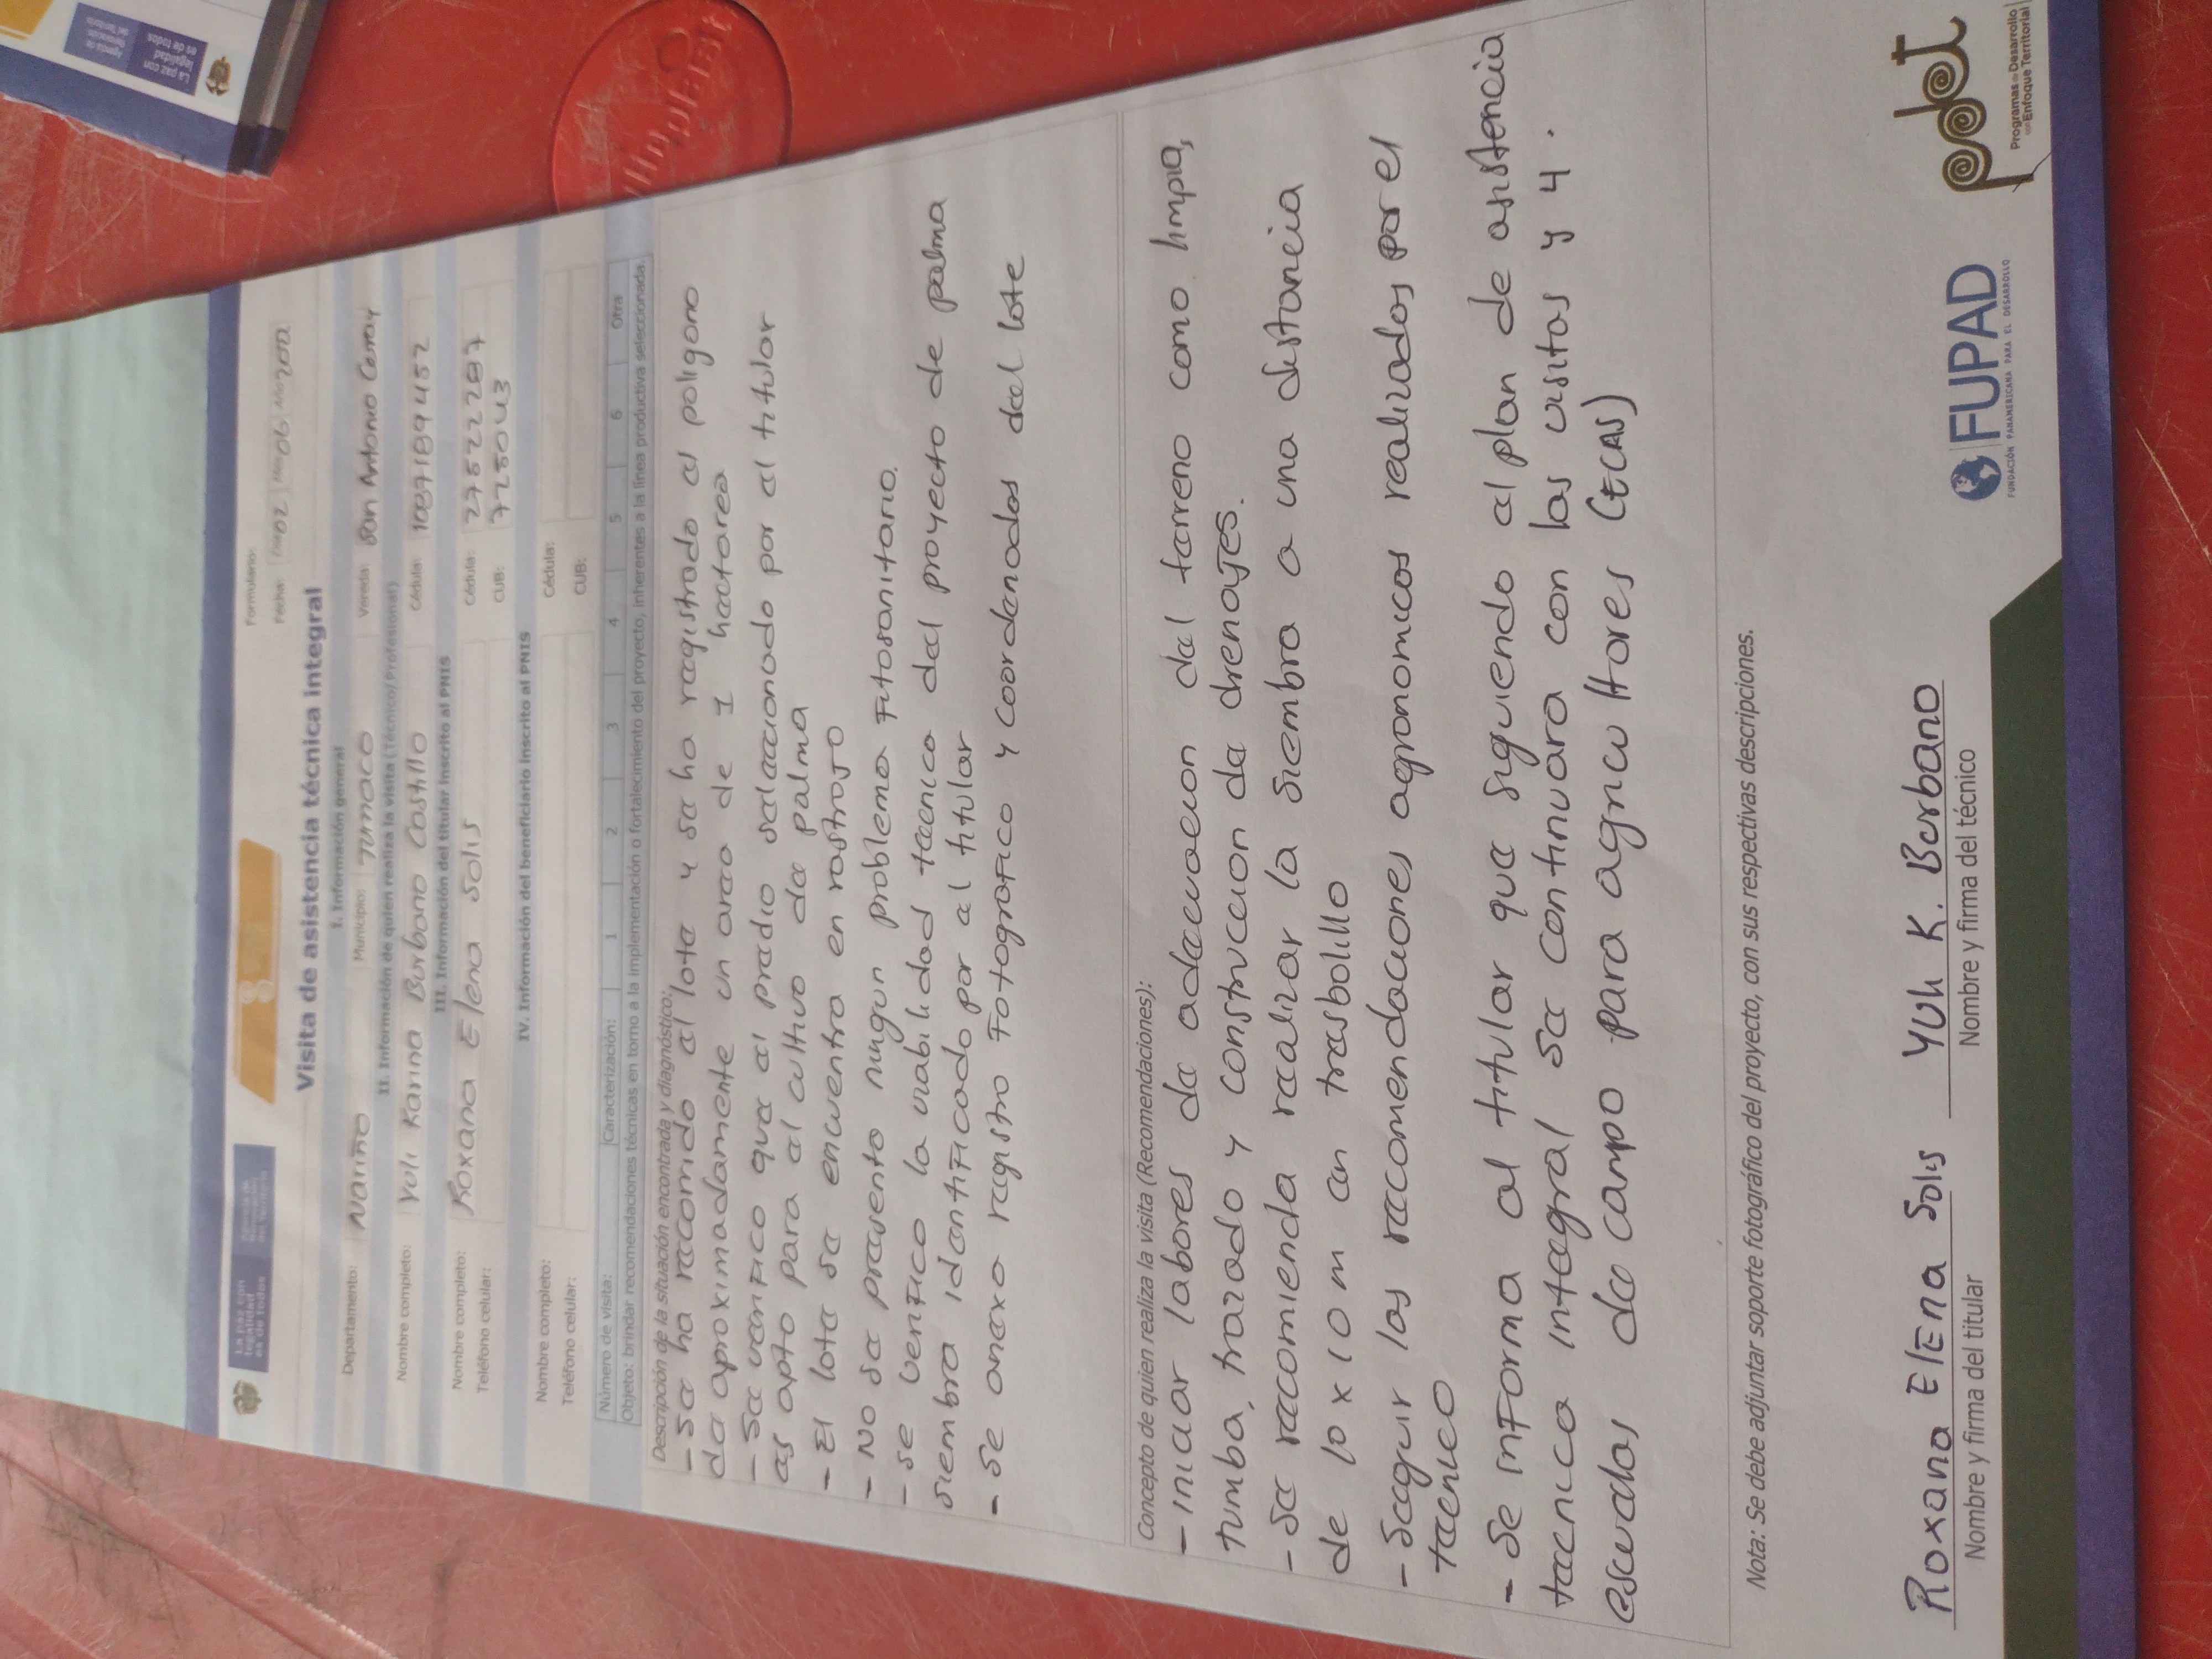 La paz con
legalidad
es de todos
Agencia de
Renovación
del Territorio
Formulario:
Visita de asistencia técnica integral
Fecha: Día 02 Mes 06 Año
I. Información general
Departamento: Nariño Municipio: Tumaco Vereda: San Antonio
II. Información de quien realiza la visita (Técnico/Profesional)
Nombre completo: Yuli Karina Burbano Castillo Cédula: 1087189452
III. Información del titular inscrito al PNIS
Nombre completo: Roxana Elena Solis Cédula: 2752222287
Teléfono celular: CUB: 7250043
IV. Información del beneficiario inscrito al PNIS
Nombre completo: Cédula:
Teléfono celular: CUB:
Número de visita: Caracterización: 1 2 3 4 5 6 Otra
Objeto: brindar recomendaciones técnicas en torno a la implementación o fortalecimiento del proyecto, inherentes a la línea productiva seleccionada.
Descripción de la situación encontrada y diagnóstico:
- Se ha recorrido el lote y se ha registrado el poligono
de aproximadamente un area de 1 hectarea
- Se verifico que el predio seleccionado por el titular
es apto para el cultivo de palma
- El lote se encuentra en rastrojo
- No se presento ningun problema Fitosanitario.
- se verifico la viabilidad tecnica del proyecto de palma
siembra identificado por el titular
- Se anexa registro Fotografico y coordenadas del lote
Concepto de quien realiza la visita (Recomendaciones):
- iniciar labores de adecuacion del terreno como limpia,
tumba, trazado y construccion de drenajes.
- Se recomienda realizar la siembra a una distancia
de 10 x 10 m en tresbolillo
- Seguir las recomendaciones agronomicas realizados por el
tecnico
- Se informa al titular que siguiendo el plan de asistencia
tecnica integral se continuara con las visitas y 4.
escuelas de campo para agricultores (ECAS)
Nota: Se debe adjuntar soporte fotográfico del proyecto, con sus respectivas descripciones.
Roxana Elena Solis Yuli K. Burbano
Nombre y firma del titular Nombre y firma del técnico
FUPAD
FUNDACIÓN PANAMERICANA PARA EL DESARROLLO
pdet
Programas de Desarrollo
con Enfoque Territorial